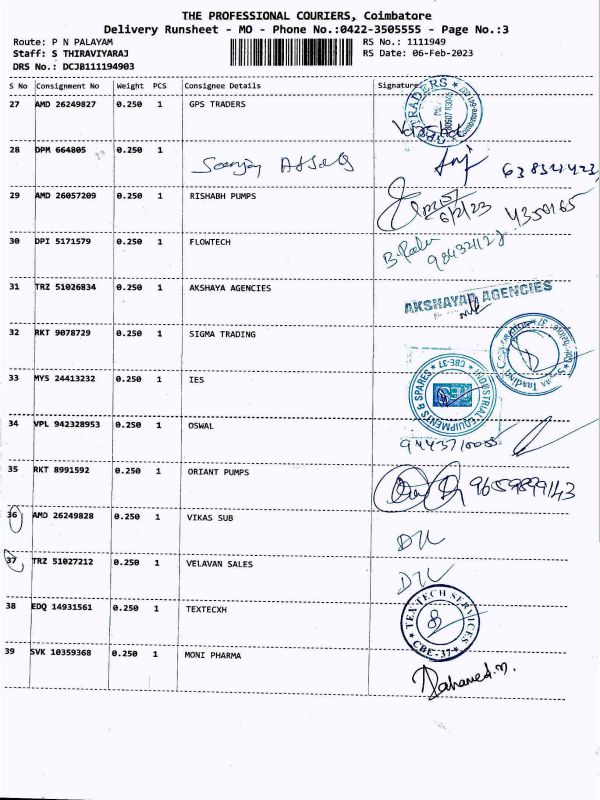 THE PROFESSIONAL COURIERS, Coimbatore
Delivery Runsheet - MO - Phone No.:0422-3505555 - Page No.:3
Route: P N PALAYAM RS No.: 1111949
Staff: S THIRAVIYARAJ RS Date: 06-Feb-2023
DRS No.: DCJB111194903
S No Consignment No Weight PCS Consignee Details Signature
27 AMD 26249827 0.250 1 GPS TRADERS
28 DPM 664805 0.250 1
29 AMD 26057209 0.250 1 RISHABH PUMPS
6/2/23
30 DPI 5171579 0.250 1 FLOWTECH
31 TRZ 51026834 0.250 1 AKSHAYA AGENCIES
AKSHAYAA AGENCIES
32 RKT 9078729 0.250 1 SIGMA TRADING
33 MYS 24413232 0.250 1 IES
INDUSTRIAL EQUIPMENTS & SPARES * CBE-37 *
34 VPL 942328953 0.250 1 OSWAL
35 RKT 8991592 0.250 1 ORIANT PUMPS
9659899143
36 AMD 26249828 0.250 1 VIKAS SUB
37 TRZ 51027212 0.250 1 VELAVAN SALES
38 EDQ 14931561 0.250 1 TEXTECXH
TEX TECH SERVICES * CBE-37 *
39 SVK 10359368 0.250 1 MONI PHARMA